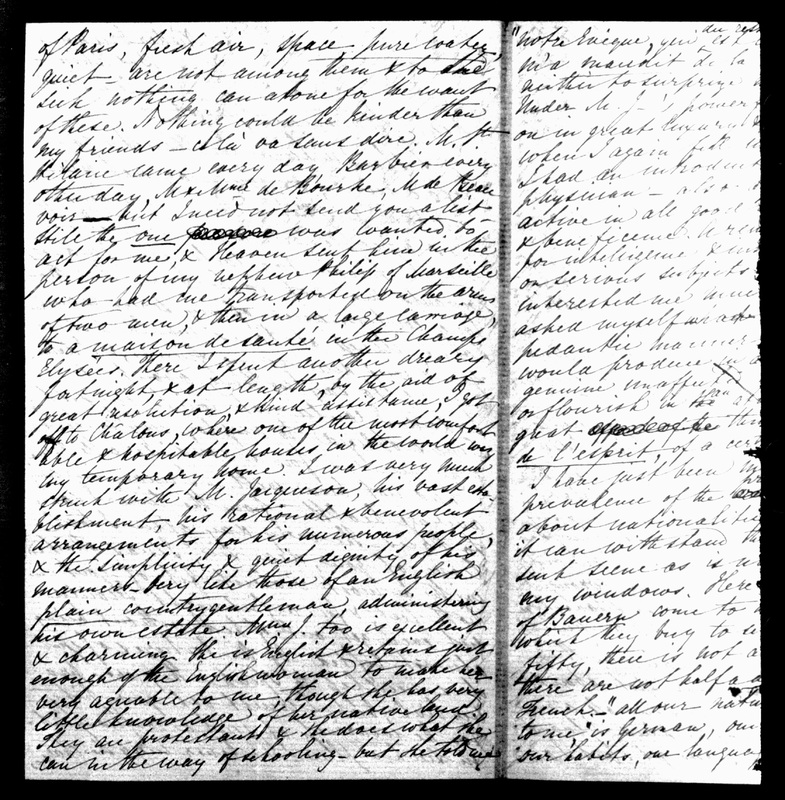 of Paris, fresh air, space, pure water,
quiet are not among them & to the
sick nothing can atone for the want
of these. Nothing could be kinder than
my friends – cela va sans dire. M. St
Hilaire came every day Barbier every
other day, M & Mme de Bourke, M de
voir – but I need not send you a list
still the one was wanted, to
act for me, & Heaven sent him in the
person of my nephew Philip of Marseille
who had me transported on the arms
of two men, & then in a large carriage,
to a maison de santé in the Champs
Elysées. Here I spent another dreary
fortnight, & at length, by the aid of
great resolution, & kind assistance, I got
off to Chalons, where one of the most comfort
able & hospitable houses in the world was
my temporary home. I was very much
struck with M. his vast esta
blishment, his rational & benevolent
arrangements for his numerous people,
& the simplicity & quiet dignity of his
manners – very like those of an English
plain country gentleman, administering
his own estate. Mme J. too is excellent
& charming. She is English & retains just
enough of the Englishwoman to make her
very agreeable to me, though she has very
little knowledge of her native land.
They are protestants & she does what she
can in the way of schooling – but she told me
"notre Evêque, qui est
m'a maudit de la
neither to surprise
Under M. J's power
on in great luxury &
when I again
I had an introduct
physician – also
active in all good
& beneficence
for intelligence &
on serious subjects
interested me much
asked myself
pedantic manner
would produce in a
genuine unaffect
or flourish in
great the
de l'esprit, of a cer
I have just been
prevalence of the
about nationalities
it can withstand
sent scene as is
my windows. Here
of Bauern come to
which they buy to
fifty, there is not a
there are not half a
French – "all our natu
to me "is German, our
our habits, our langua